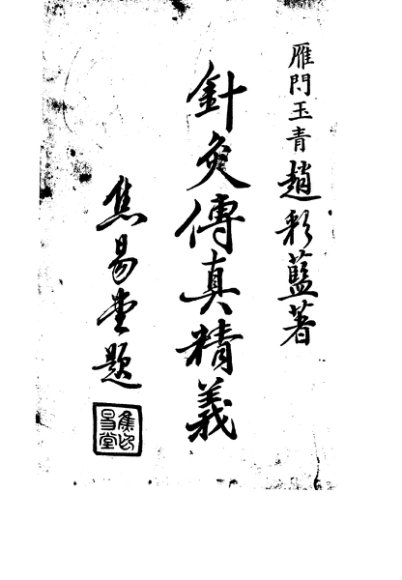 雁門玉青趙彩藍著
針灸傳真精義
焦易堂題
焦易堂印